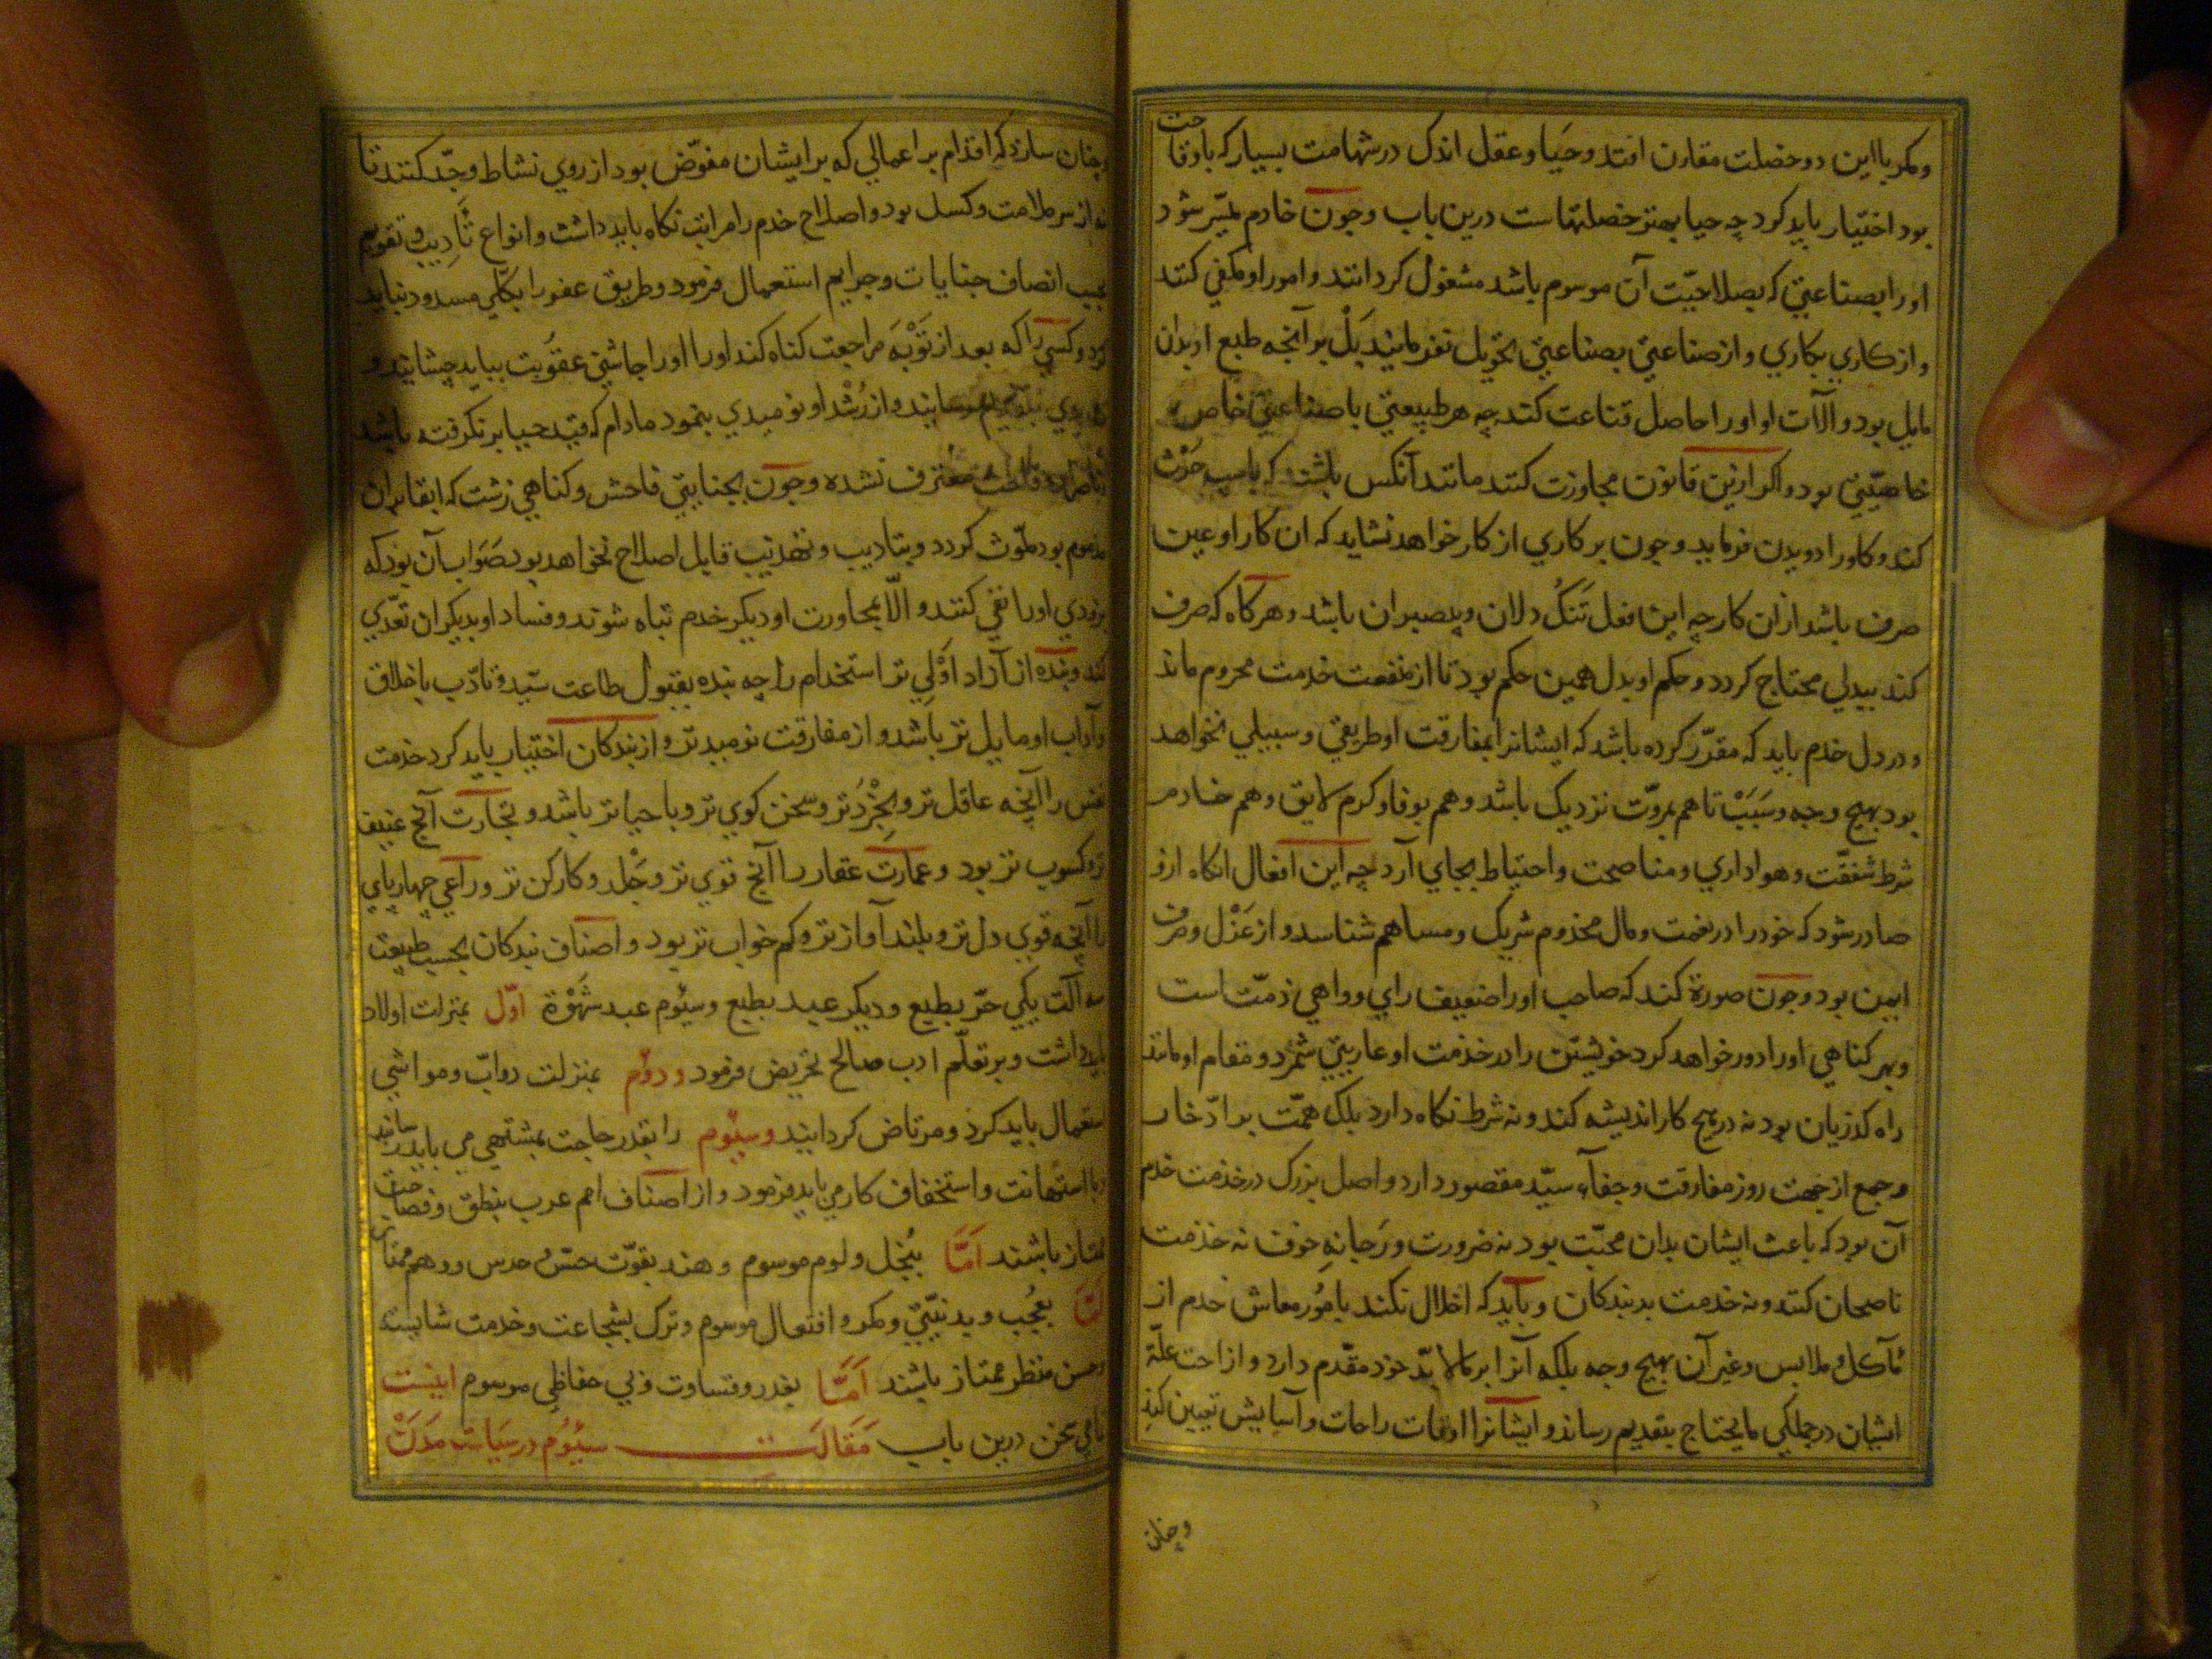 ومکر با این دو خصلت مقارن افتد و حیا و عقل اندک در شهامت بسیار که با وقاحت
بود اختیار باید کرد چه حیا بهتر خصلتهاست درین باب و چون خادم میسّر شود
اورا بصناعتی که بصلاحیّت آن موسوم باشد مشغول کردانند و امور او مکفی کنند
و از کاری بکاری و از صناعتی بصناعتی تحویل نفرمایند بَلْ بر آنچه طبع او بدان
مایل بود و آلات او اورا حاصل قناعت کنند چه هر طبیعتی با صناعتی خاص
خاصیّتی بود و اکر ازین قانون مجاوزت کنند مانند آنکس باشند که باسپ حَرْث
کند و کاو را دویدن فرماید و چون بر کاری از کار خواهد نشاید که ان کار او عین
صرف باشد ازان کار چه این فعل تَنَکْ دلان و بیصبران باشد و هرکاه که صرف
کند ببدلی محتاج کردد و حکم او بدل همین حکم بود تا از منفعت خدمت محروم ماند
و در دل خدم باید که مقرّر کرده باشد که ایشانرا بمفارقت او طریقی و سبیلی نخواهد
بود بهیچ وجه و سَبَبْ تا هم بمروّت نزدیک باشد و هم بوفا و کرم لایق و هم خادم
شرط شفقّت و هواداری و مناصحت و احتیاط بجای آرد چه این افعال انکاه ازو
صادر شود که خودرا در نعمت و مال مخدوم شریک و مساهم شناسد و از عَزْل و صرف
ایمن بود و چون صورة کند که صاحب اورا ضعیف رای و واهی ذمّت است
و بهر کناهی اورا دور خواهد کرد خویشتن را در خدمت او عاریتی شمرد و مقام او مانند
راه کذریان بود نه در هیچ کار اندیشه کند و نه شرط نکاه دارد بلک همّت بر ادّخار
و جمع از جهت روز مفارقت و جفآء سیّد مقصور دارد و اصل بزرک در خدمت خدم
آن بود که باعث ایشان بدان محبّت بود نه ضرورت و رَجا نه خوف نه خدمت
ناصحان کنند و نه خدمت بد بندکان و باید که اخلال نکند بامُور معاش خدم از
مآکل و ملابس و غیر آن بهیچ وجه بلکه آنرا بر مالا بدّ خود مقدّم دارد و ازاحت علّة
ایشان در جملکی مایحتاج بتقدیم رساند و ایشانرا اوقات راحات و آسایش تعیین کند
و چنان
و چنان سازد که اقدام بر اعمالی که بر ایشان مفوّض بود از روی نشاط و جدّ کنند تا
نه از سر ملامت و کسل بود و اصلاح خدم را مراتب نکاه باید داشت و انواع تَأدِیب و تقویم
بحسب انصاف جنایات و جرایم استعمال فرمود و طریق عفو را بکلّی مسدود نباید
کرد و کسی را که بعد از تَوْبَه مراجعت کناه کند اورا اورا چاشنی عقُوبت بباید چشانید و
و از رُشْد او نومیدی ننمود مادام که قید حیا بر نکرفته باشد
معترف نشده و چون بجنایتی فاحش و کناهی زشت که ابقا بران
مذموم بود ملوّث کردد و بتادیب و تهذیب قابل اصلاح نخواهد بود صَوَاب آن بود که
بزودی اورا نفی کنند و الّا بمجاورت او دیکر خدم تباه شوند و فساد او بدیکران تعدّی
کند و بنده از آزاد اَوْلی تر استخدام را چه بنده بقبول طاعت سیّد و تادّب باخلاق
و آداب او مایل تر باشد و از مفارقت نومیدتر و از بندکان اختیار باید کرد خدمت
نفس را آنچه عاقل تر و بخِرَدْ تر و سخن کوی تر و باحیا تر باشد و تجارت آنچ عفیف
تر و کسوب تر بود و عمارت عقار را آنچ قوی تر و جَلْد و کارکن تر و راعی چهارپای
را آنچه قوی دل تر و بلند آواز تر و کم خواب تر بود و اصناف بندکان بحسب طبیعت
سه آلت یکی حرّ بطبع و دیکر عبد بطبع و سیُوم عبد شَهْوَة اوّل بمنزلت اولاد
باید داشت و بر تعلّم ادب صالح تحریض فرمود و دوّم بمنزلت دوابّ و مواشی
استعمال باید کرد و مرتاض کردانید و سیُوم را بقدر حاجت بمشتهی می باید رساند
و با استهانت و استخفاف کار می باید فرمود و از اصناف امم عرب بنطق و فصاحت
ممتاز باشند اَمَّا ببُخل و لوم موسوم و هند بقوّت حسّ و حدس و وهم ممتاز
اَمَّا بعُجب و بد نیّتی و مکر و افتعال موسوم و ترک بشجاعت و خدمت شایسته
و حسن منظر ممتاز باشند اَمَّا بغدر و قساوت و بی حفاظی موسوم اینست
تمامی سخن درین باب مَقَالَت سیُوُم در سیاست مدن